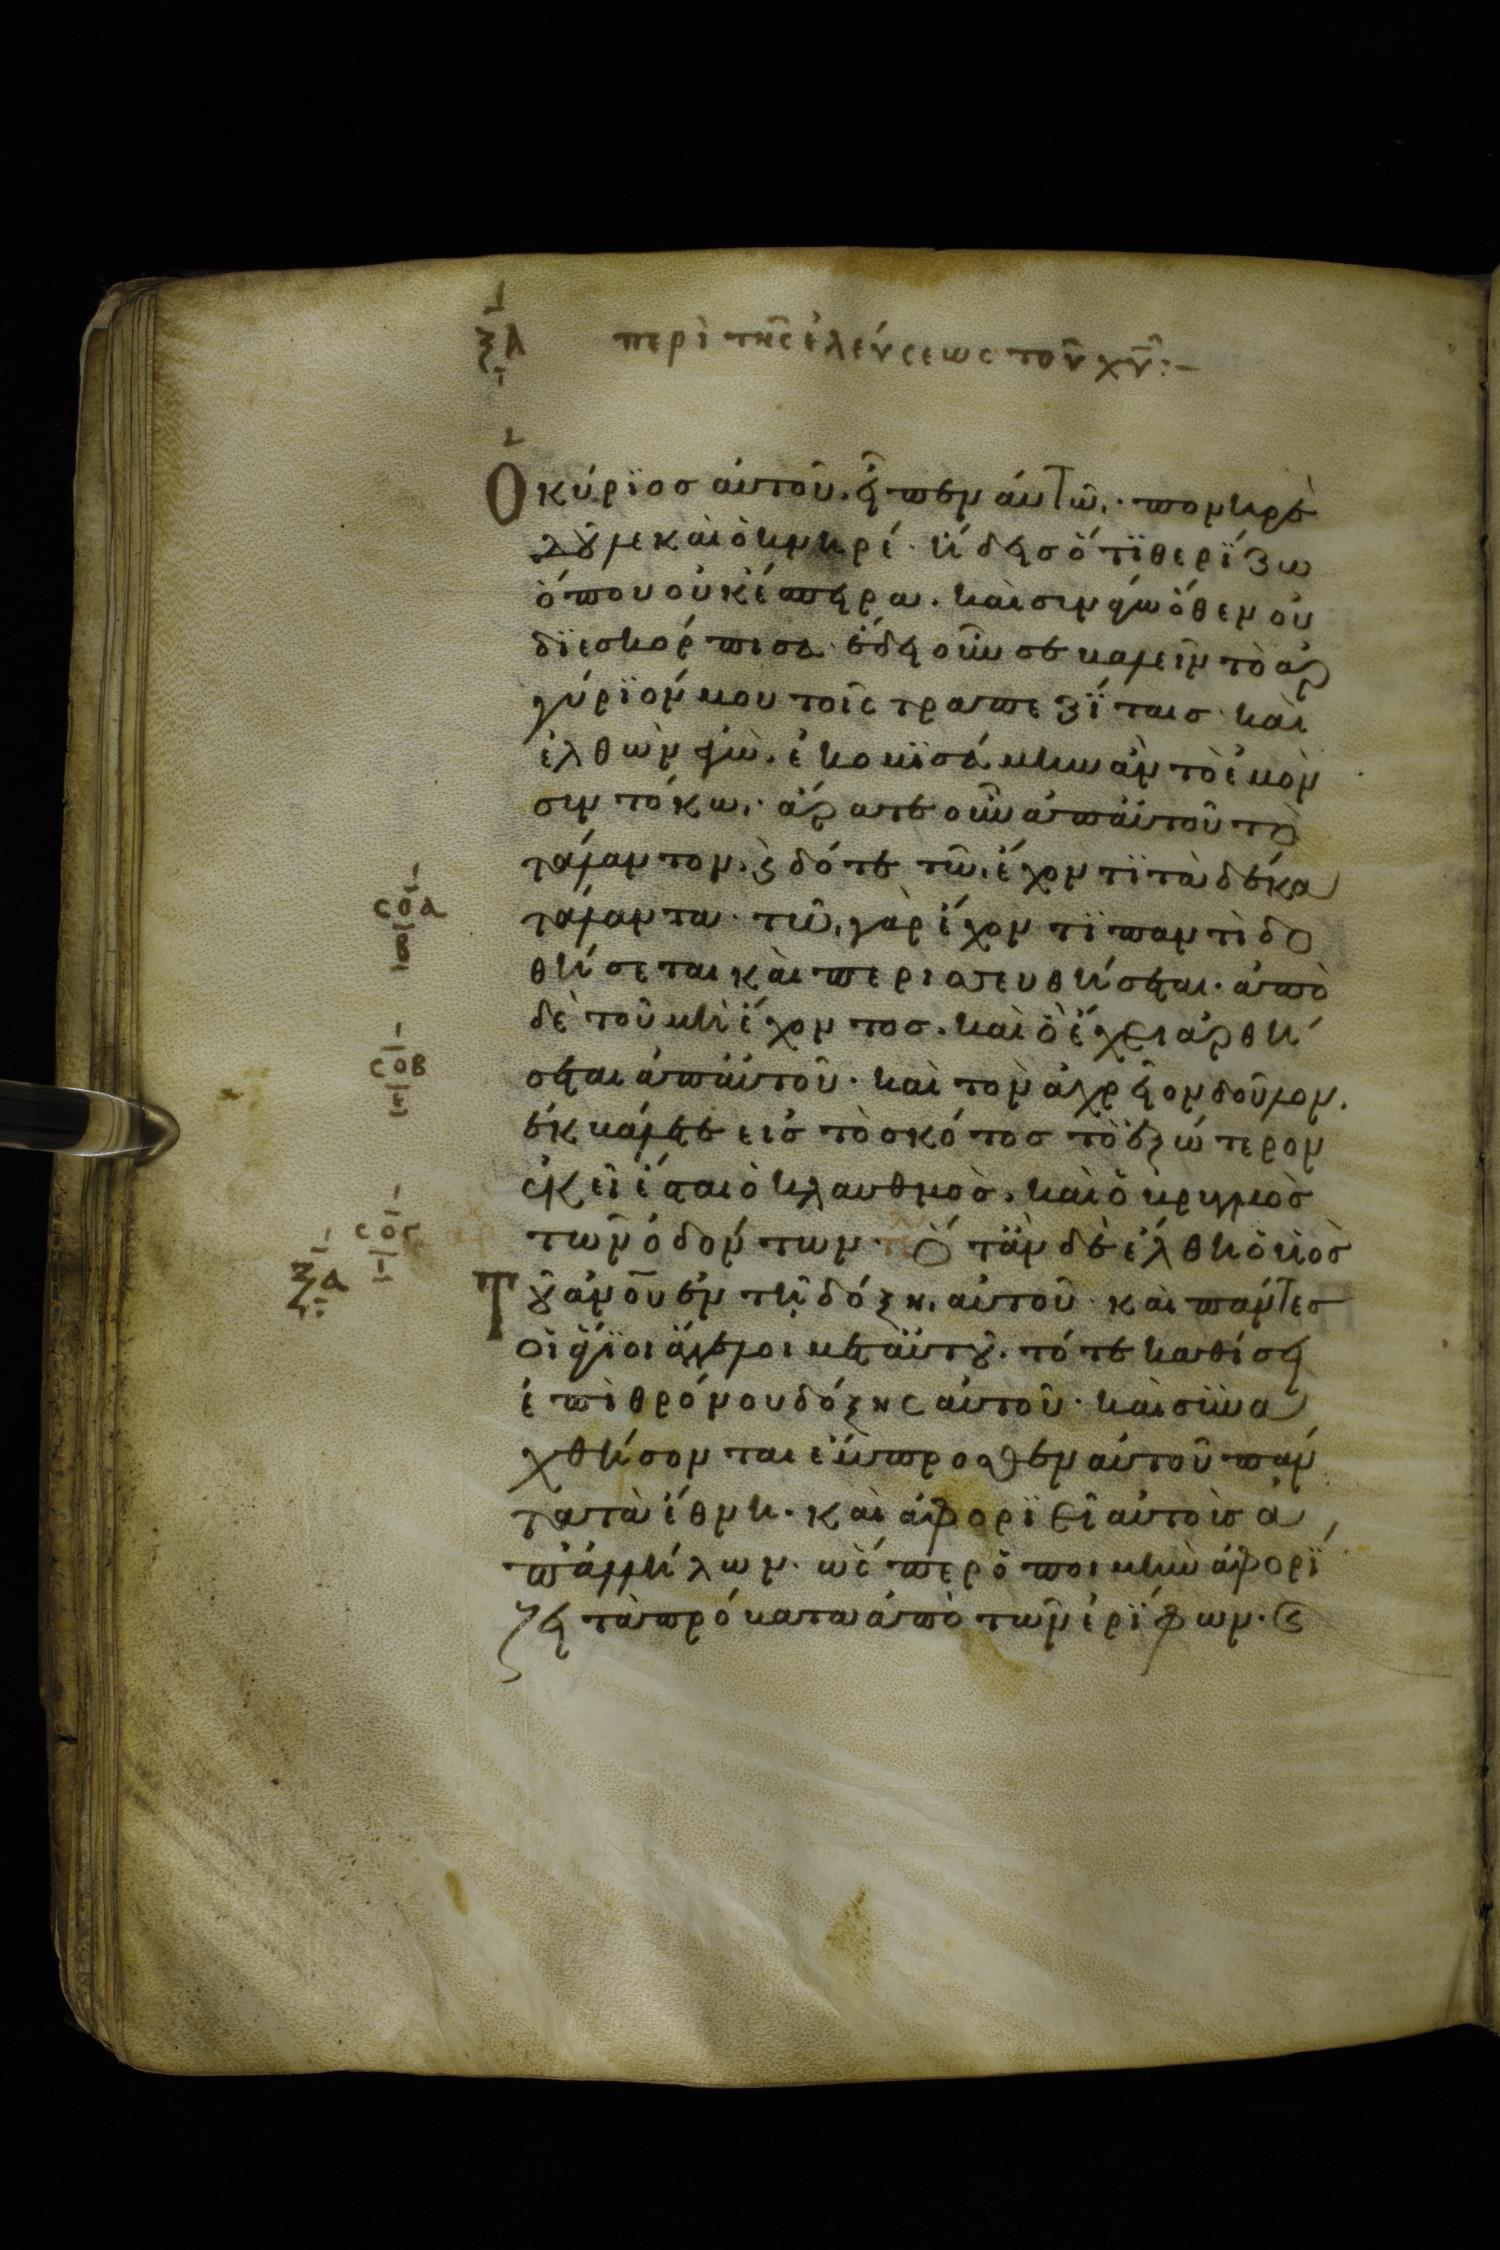 ξδ περὶ τῆς ἐλεύσεως τοῦ χῦ:-
Ὁ κύρϊοσ αὐτοῦ. εἶπεν αὐτῶ. πονηρὲ
δοῦλε καὶ ὀκνηρέ. ἤδεισ ὅτϊ θερίζω
ὅπου οὐκ ἔσπειρα. καὶ συνάγω ὅθεν οὐ
διεσκόρπισα. ἔδει οὖν σε βαλεῖν τὸ ἀρ
γύρϊόν μου τοῖς τραπεζίταισ. καὶ
ἐλθὼν ἐγὼ. ἐκομϊσάμην ἂν τὸ ἐμὸν
σὺν τόκω. ἄρατε οὖν ἀπ αὐτοῦ τὸ
τάλαντον. καὶ δότε τῶ ἔχοντϊ τὰ δέκα
τάλαντα. τῶ γὰρ ἔχοντϊ παντὶ δο
θήσεται καὶ περισσευθήσεται. ἀπὸ
δὲ τοῦ μὴ ἔχοντοσ. καὶ ὃ ἔχει ἀρθή
σεται ἀπ αὐτοῦ. καὶ τὸν ἀχρεῖον δοῦλον.
σοα
β
σοβ
ε
ἐκβάλετε εἰσ τὸ σκότοσ τὸ ἐξώτερον
ἐκεῖ ἔσται ὁ κλαυθμὸσ. καὶ ὁ βρυγμὸσ
σογ
ι
τῶν ὀδόντων. Ὅταν δὲ ἔλθη ὁ υἱὸσ
ξδ
τοῦ ἀνοῦ ἐν τῆ δόξη αὐτοῦ. καὶ πάντεσ
οἱ ἅγϊοι ἄγγελοι μετ αὐτοῦ. τότε καθίσει
ἐπὶ θρόνου δόξης αὐτοῦ. καὶ συνα
χθήσονται ἔμπροσθεν αὐτοῦ πάν
τα τὰ ἔθνη. καὶ ἀφορϊεῖ αὐτοὺσ ἀ
π ἀλλήλων. ὥσπερ ὁ ποιμὴν ἀφορϊ
ζει τὰ πρόβατα ἀπὸ τῶν ἐρϊφων. καὶ